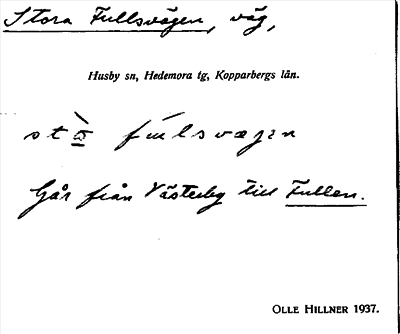 Stora Fullsvägen, väg,
Husby sn, Hedemora tg, Kopparbergs län.
Går från Västerby till Fullen.
OLLE HILLNER 1937.